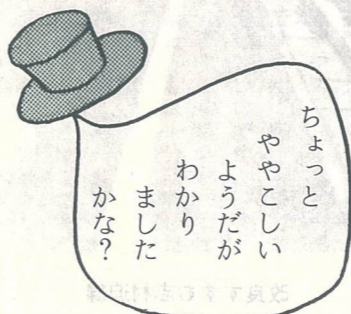 ちょっと
ややこしい
ようだが
わかり
ました
かな？